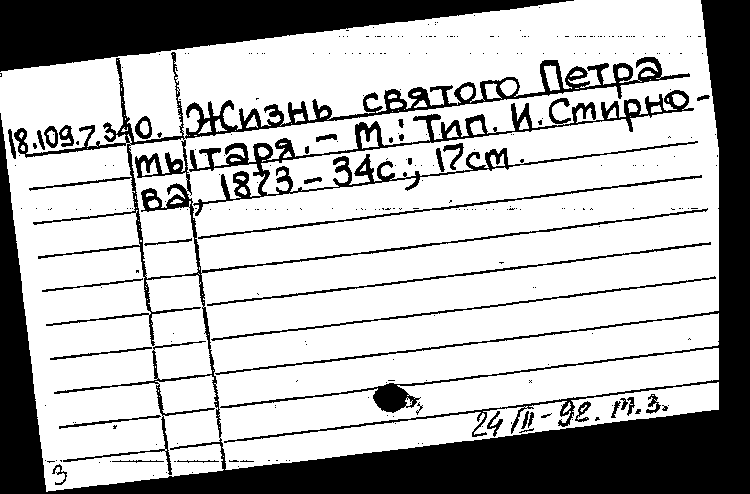 18.109.7.340. Жизнь святого Петра
мытаря. – М.: Тип. И. Смирно-
ва, 1873. – 34с.; 17см.
24/III-92. М.З.
З